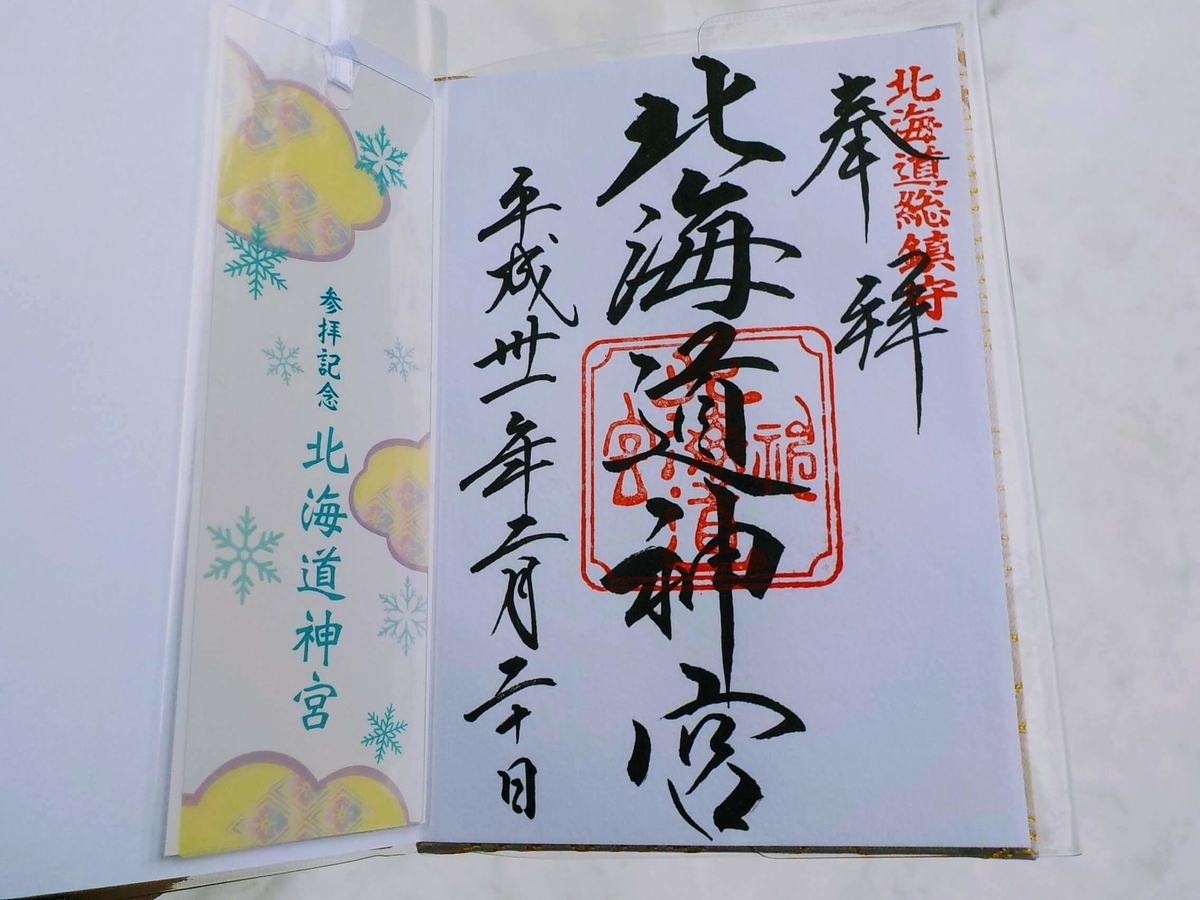 北海道総鎮守
奉拝
北海道神宮
平成卅一年二月二十日
参拝記念 北海道神宮